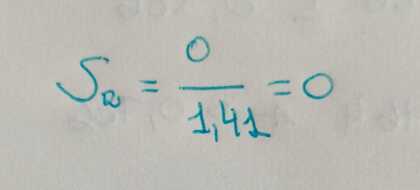 S_R = 0/1,41 = 0